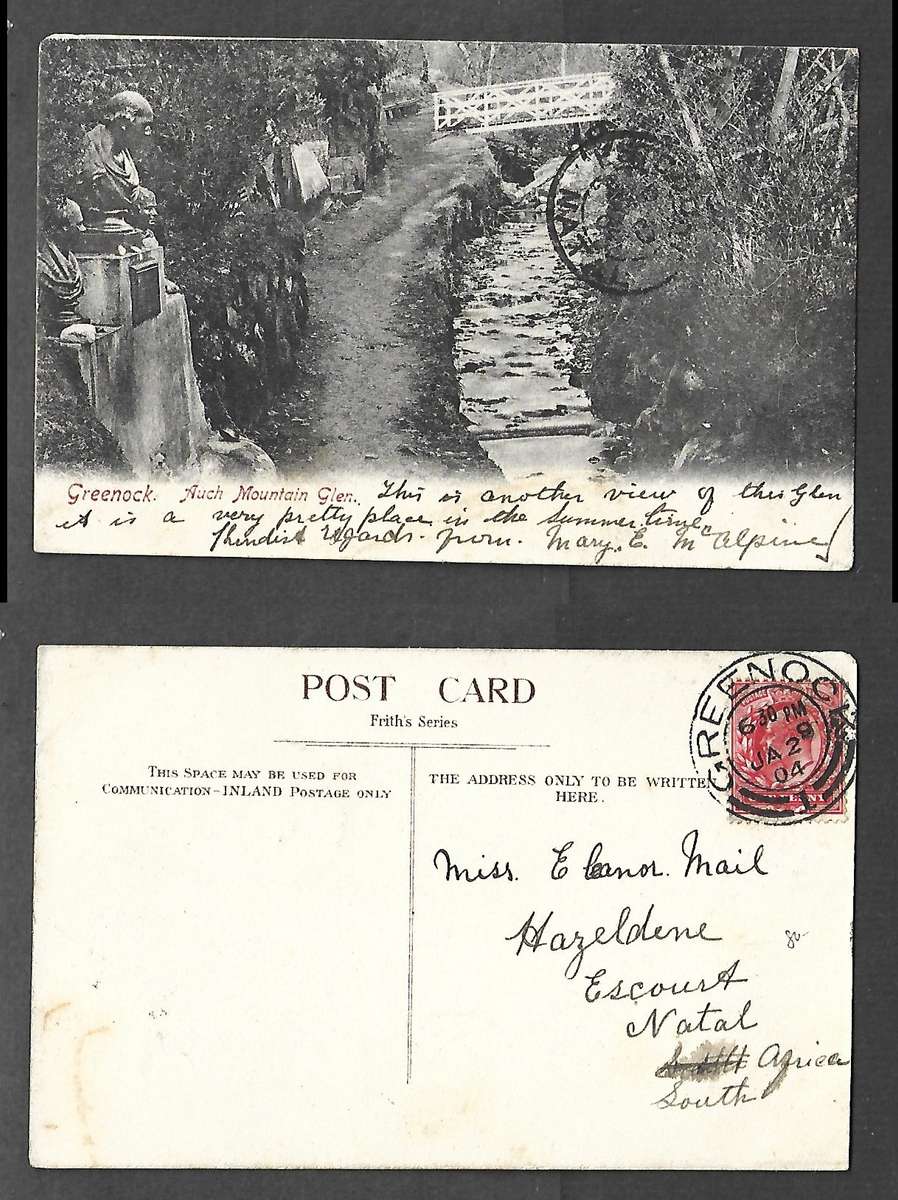 Greenock. Auch Mountain Glen. This is another view of this Glen
it is a very pretty place in the summer time.
Kindist regards. from. Mary. E. McAlpine
NATAL
POST CARD
Frith's Series
THIS SPACE MAY BE USED FOR
COMMUNICATION–INLAND POSTAGE ONLY
THE ADDRESS ONLY TO BE WRITTEN
HERE.
GREENOCK
6.30 PM
JA 29
04
1
Miss. Eleanor. Mail
Hazeldene
Escourt
Natal
Africa
South